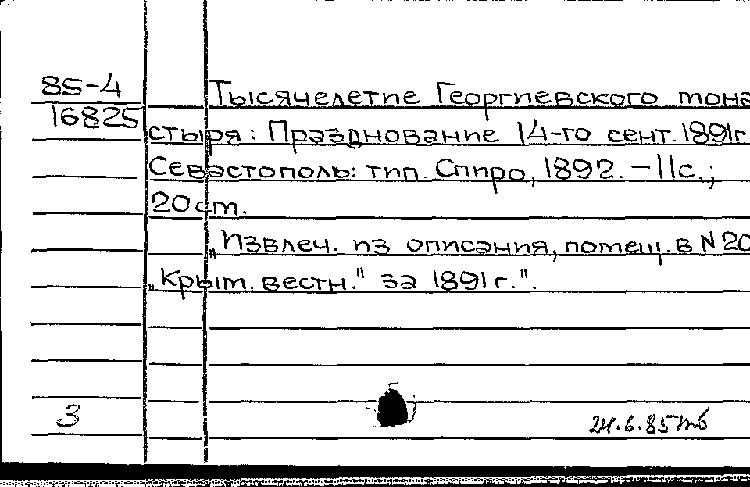 85-4
16825
Тысячелетие Георгиевского мона
стыря: Празднование 14-го сент. 1891г
Севастополь: тип. Спиро, 1892. – 11с.;
20 см.
„Извлеч. из описания, помещ. в N 20
„Крым. вестн." за 1891 г.".
3
24.6.85